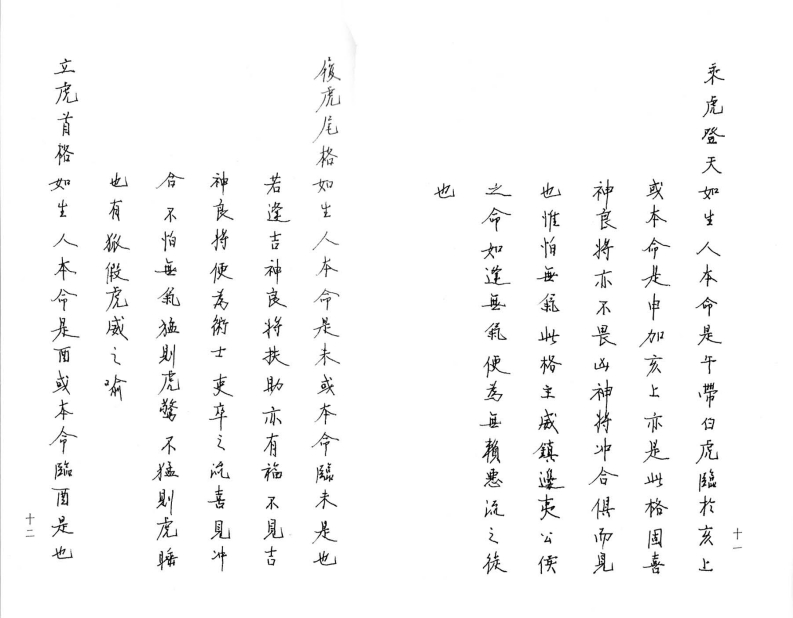 乘虎登天如生人本命是午帶白虎臨於亥上
或本命是申加亥上亦是此格固喜
神良將亦不畏凶神將冲合俱而見
也惟怕無氣此格主威鎮邊夷公侯
之命如逢無氣便為無賴惡流之徒
也
十一
履虎尾格如生人本命是未或本命臨未是也
若逢吉神良將扶助亦有福不見吉
神良將便為術士吏卒之流喜見冲
合不怕無氣猛則虎驚不猛則虎睡
也有狐假虎威之喻
立虎首格如生人本命是酉或本命臨酉是也
十二